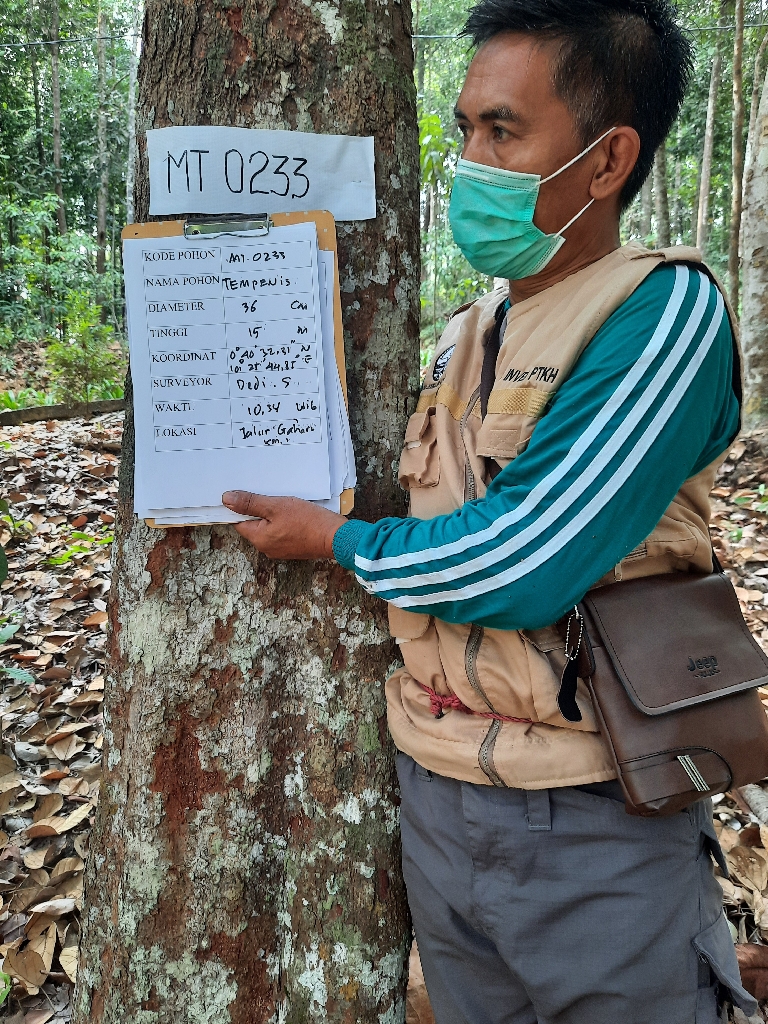 MT 0233
KODE POHON MT. 0233
NAMA POHON TEMPENIS
DIAMETER 36 Cm
TINGGI 15 m
KOORDINAT 0° 40' 32,81" N
101° 25' 44,85" E
SURVEYOR Dedi. S
WAKTU 10.34 Wib
LOKASI Jalur Gaharu
km. 1
INVE PTKH
Jeep